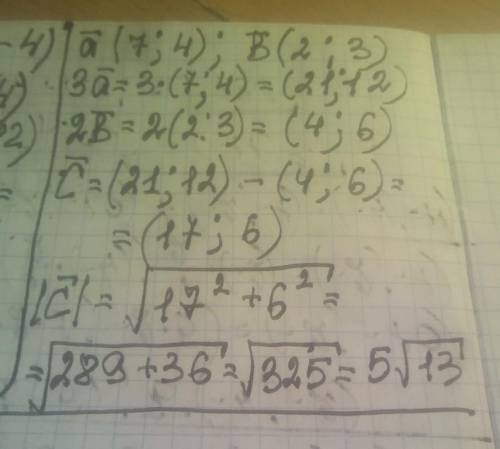 -4) a̅ (7; 4); B̅ (2; 3)
4) 3a̅ = 3·(7; 4) = (21; 12)
2) 2B̅ = 2(2; 3) = (4; 6)
= C̅ = (21; 12) - (4; 6) =
= (17; 6)
|C̅| = √17² + 6² =
= √289 + 36 = √325 = 5√13